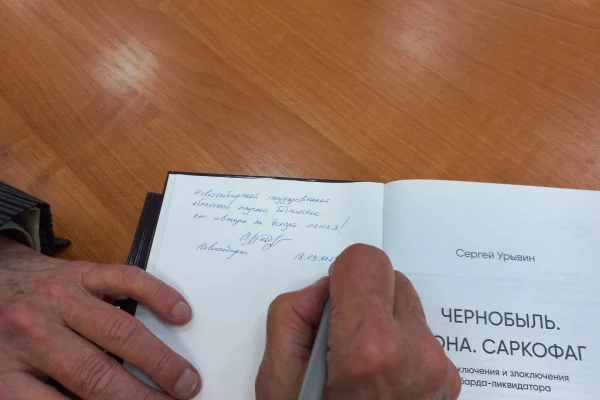 Новосибирской государственной
областной научной библиотеке
от автора на добрую память!
Новосибирск 18.09.
Сергей Урывин
ЧЕРНОБЫЛЬ.
ОНА. САРКОФАГ
ключения и злоключения
барда-ликвидатора